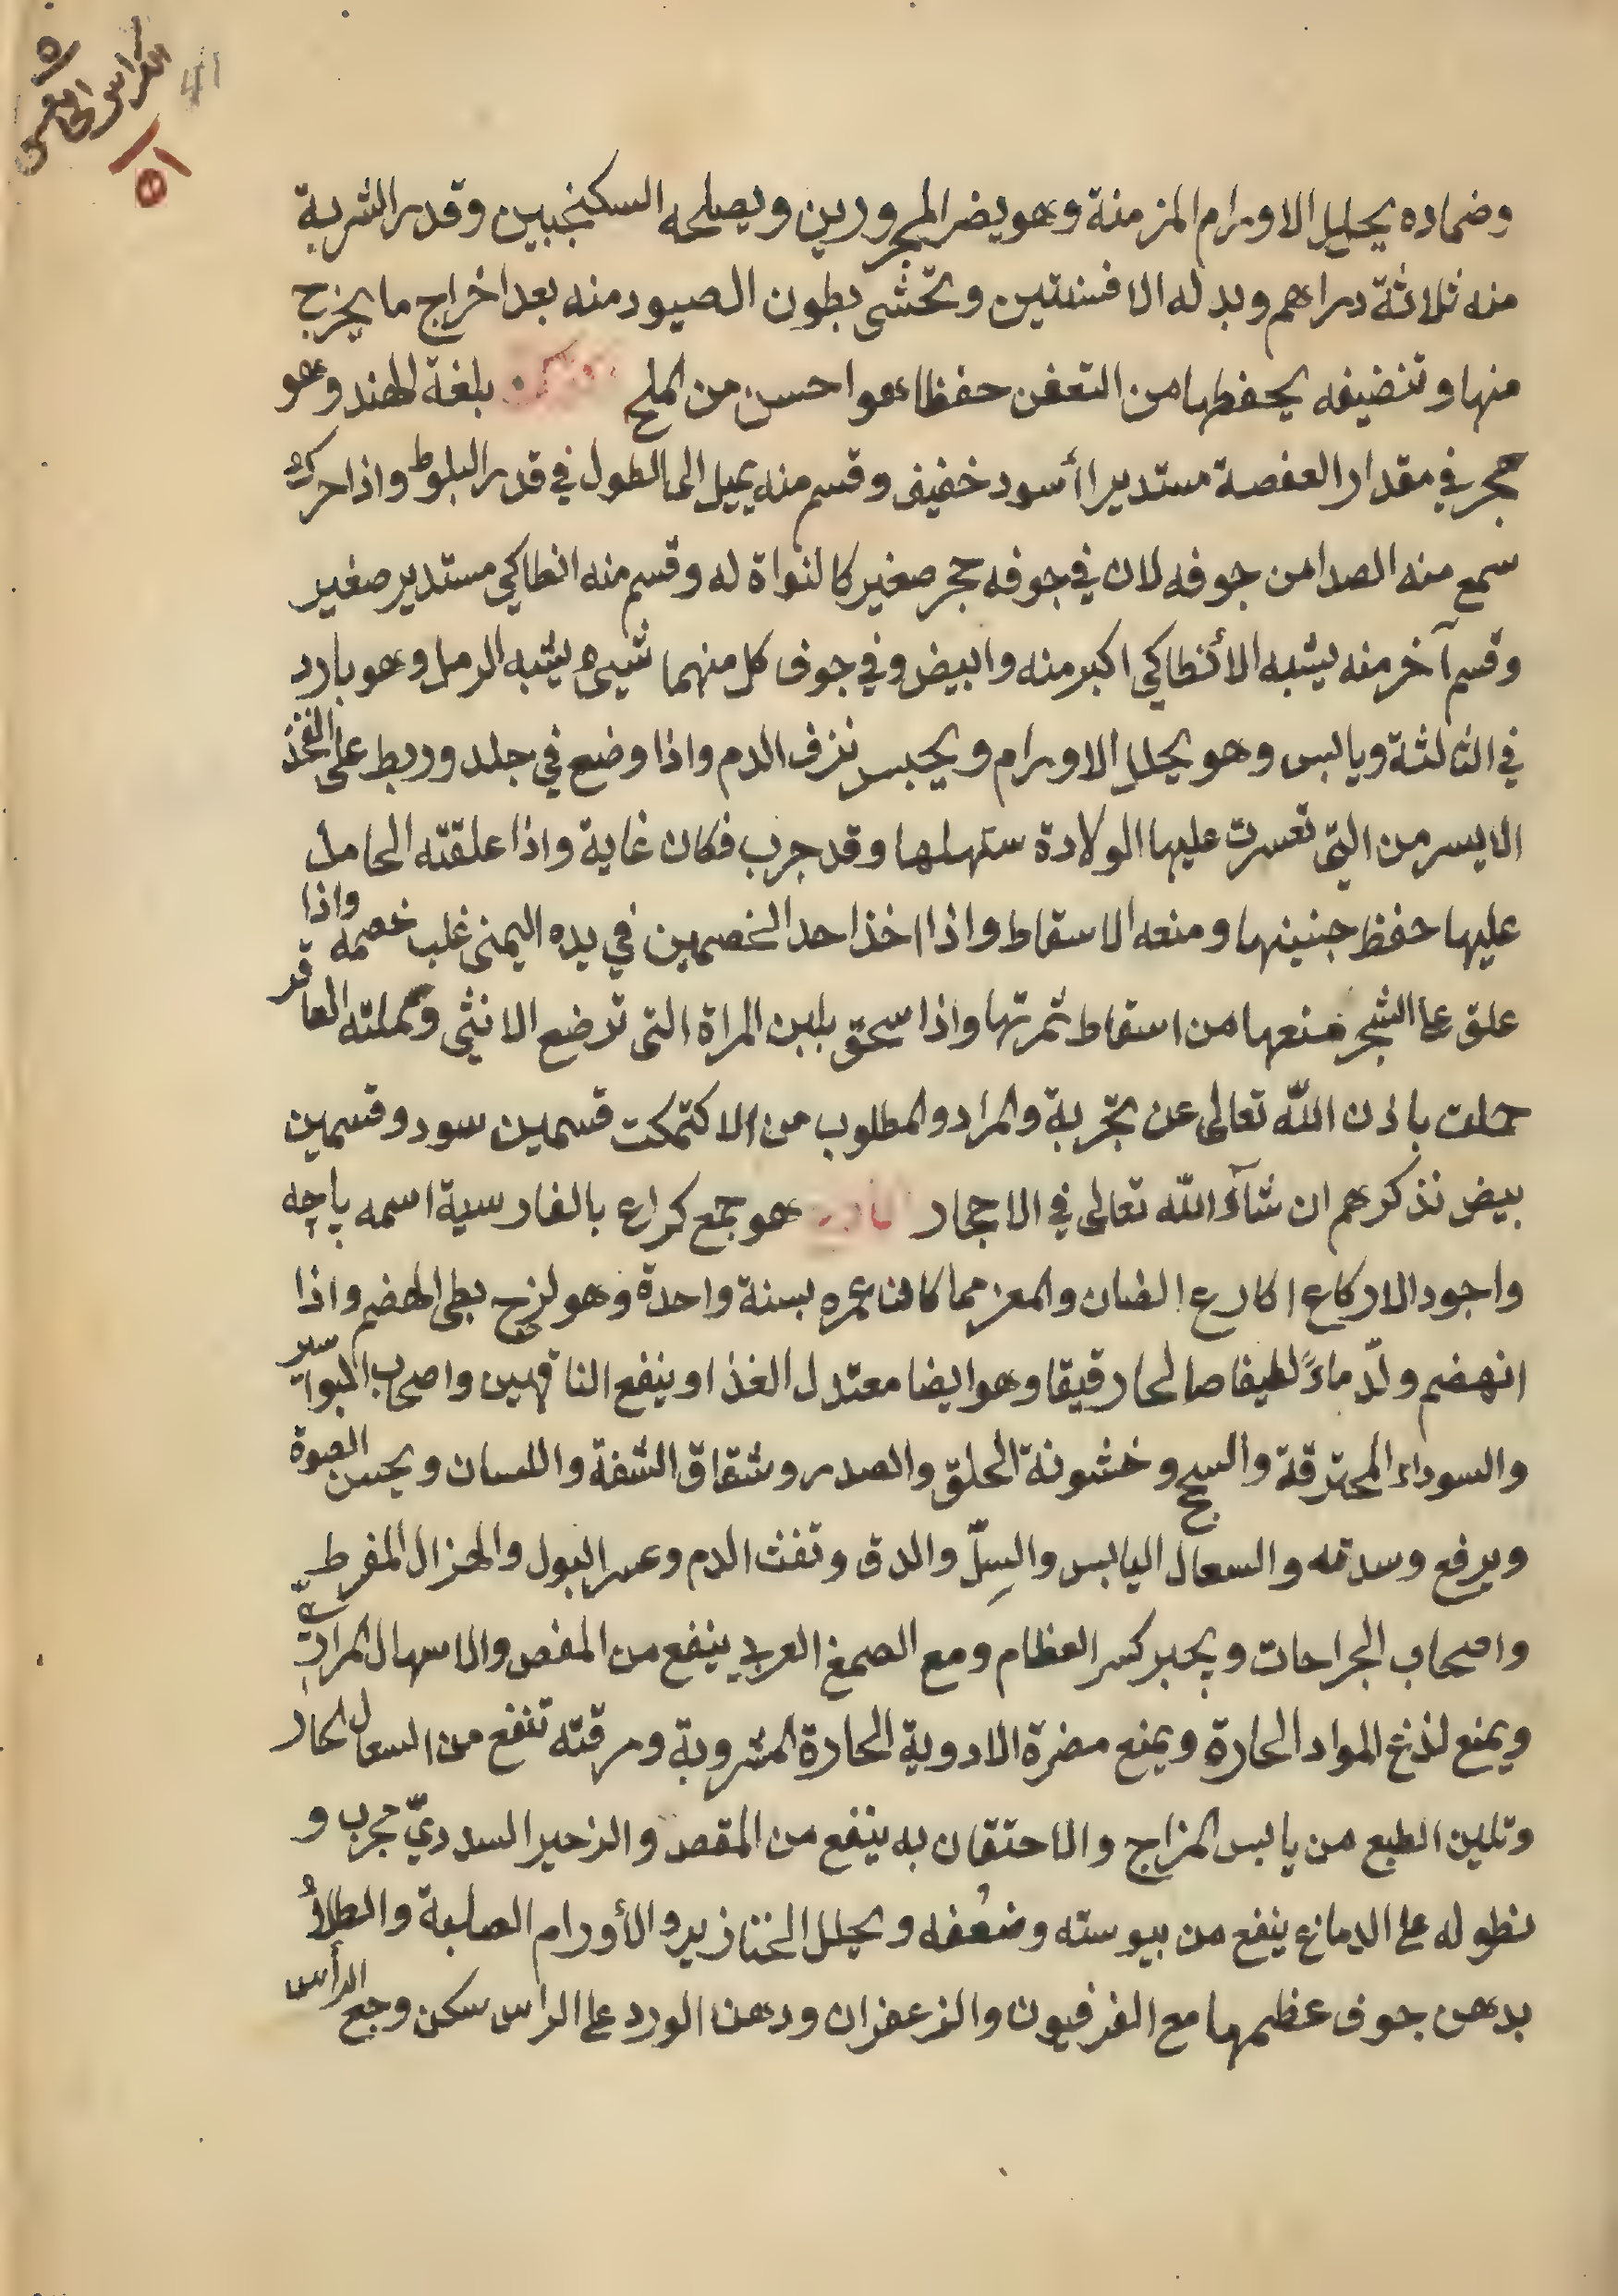 الكراس الخامس
٥
41
٥١
وضماده يحليل الاورام المزمنة وهو يضر المحرورين ويصلحه السكنجبين وقدر الشربة
منه ثلاثة دراهم وبدله الافسنتين وتحشى بطون الصيود منه بعد اخراج ما يخرج
منها وتنضيفه يحفظها من التعفن حفظا هو احسن من الملح بلغة الهند وهو
حجر في مقدار العفصة مستديرا أسود خفيف وقسم منه يميل الى الطول في قدر البلوط واذا حرك
سمع منه الصدا من جوفه لان في جوفه حجر صغير كالنواة له وقسم منه انطاكي مستدير صغير
وقسم آخر منه يشبه الأنطاكي اكبر منه وابيض وفي جوف كل منهما شيىء يشبه الرمل وهو بارد
في الثالثة ويابس وهو يحلل الاورام ويحبس نزف الدم واذا وضع في جلد وربط على الفخذ
الايسر من التي تعسرت عليها الولادة ستهلها وقد جرب فكان غاية واذا علقته الحامل
عليها حفظ جنينها ومنعه الاسقاط واذا اخذ احد الخصمين في يده اليمنى غلب خصمه واذا
علق على الشجر منعها من اسقاط ثمرتها واذا سحق بلبن المراة التي ترضع الانثى وحملته العاقر
حملت باذن الله تعالى عن تجربة والمراد والمطلوب من الاكتمكت قسمين سود وقسمين
بيض نذكرهم ان شآء الله تعالى في الاحجار هو جمع كراع بالفارسية اسمه پاچه
واجود الاركاع اكارع الضان والمعز مما كانا عمره بسنة واحدة وهو لزج بطى الهضم واذا
انهضم ولّد ماءً لطيفا صالحا رقيقا وهو ايضا معتدل الغذا وينفع الناقهين واصحاب البواسير
والسوداء المحترقة والسحج وخشونة الحلق والصدر وشقاق الشفة واللسان ويحسن الصوة
ويرفع وسدته والسعال اليابس والسِلّ والدق ونفث الدم وعسر البول والهزال المفرط
واصحاب الجراحات ويجبر كسر العظام ومع الصمغ العربي ينفع من المغص والاسهال المراريّ
ويمنع لذغ المواد الحارة ويمنع مضرة الادوية الحارة المشروبة ومرقته تنفع من السعال الحار
وتلين الطبع من يابس المزاج والاحتقان به ينفع من المقص والزحير السدديّ مجرب و
نطوله على الدماغ ينفع من يبوسته وضُعفه ويحلل الخنازير والأورام الصلبة والطلاءُ
بدهن جوف عظمها مع الفرفيون والزعفران ودهن الورد على الراس سكن وجع الرأس